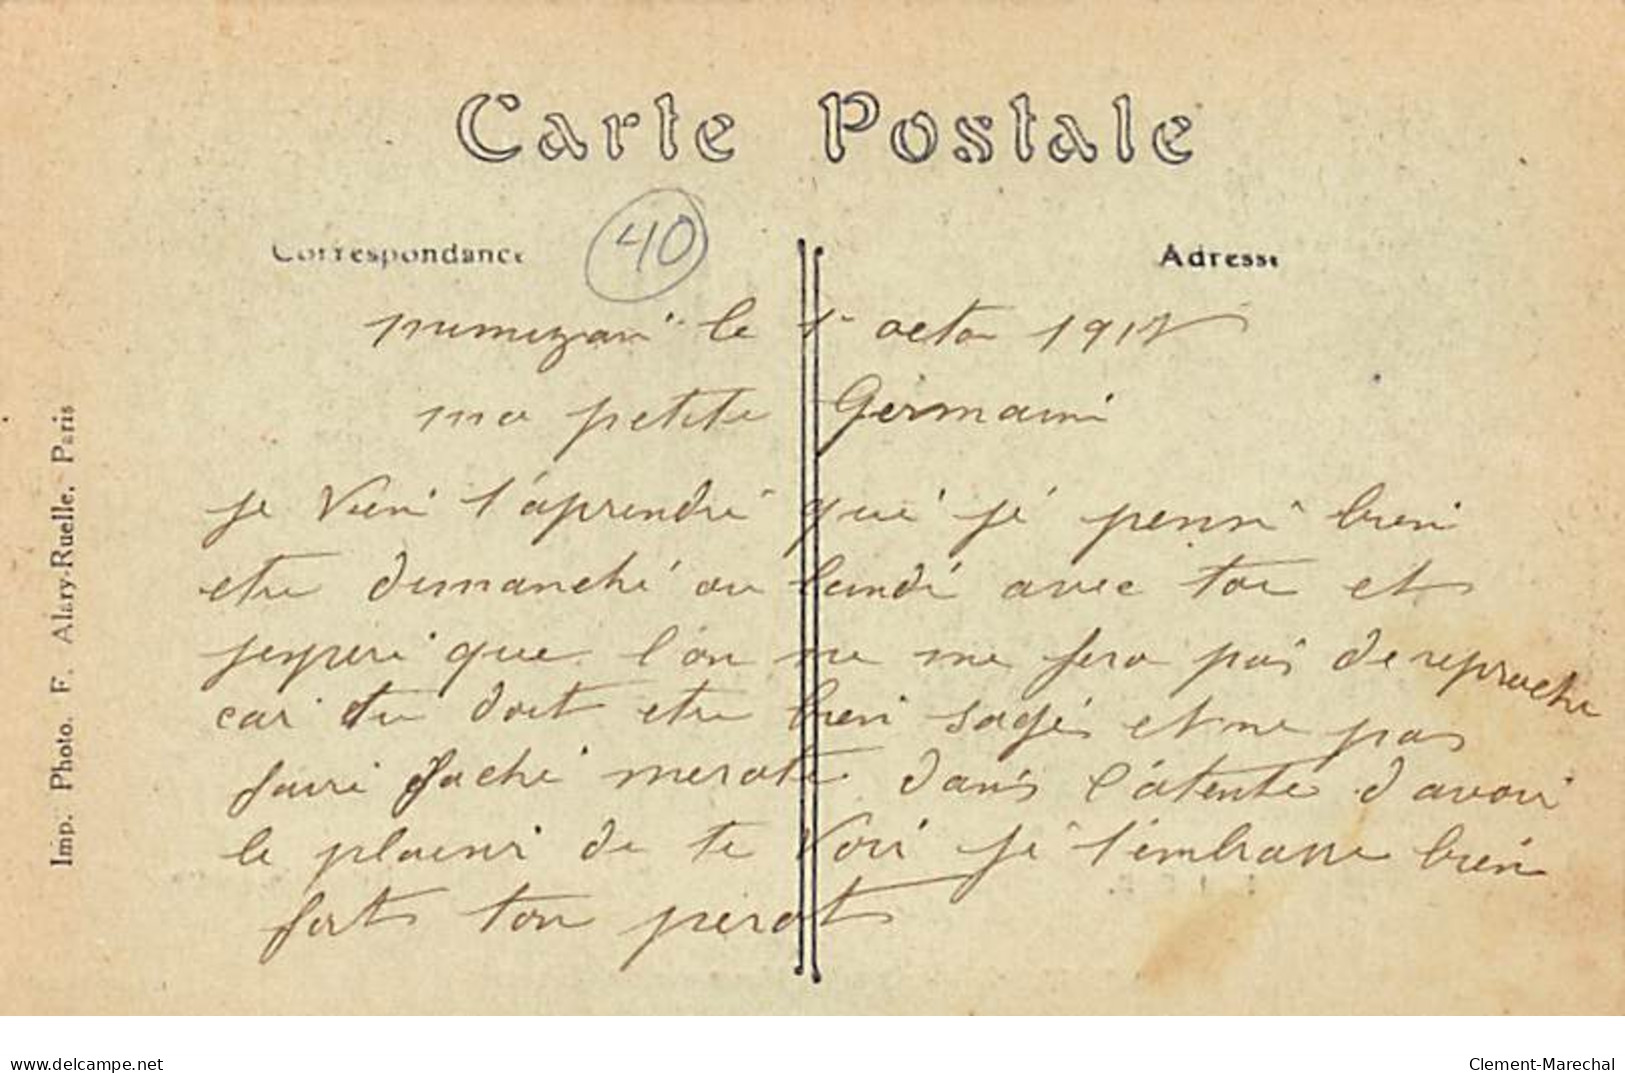 Carte Postale
Correspondance
40
Adresse
mimizan le 1er octo 1917
ma petite Germaine
je vien t'aprendre que je pense bien
etre dimanche ou lundi avec toi et
jespere que l'on ne me fera pas de reproche
car tu doit etre bien sage et ne pas
faire faché merote dans l'atente d'avoir
le plaisir de te voir je t'embrasse bien
fort ton perot
Imp. Photo. F. Alary-Ruelle, Paris
delcampe.net
Clement-Marechal